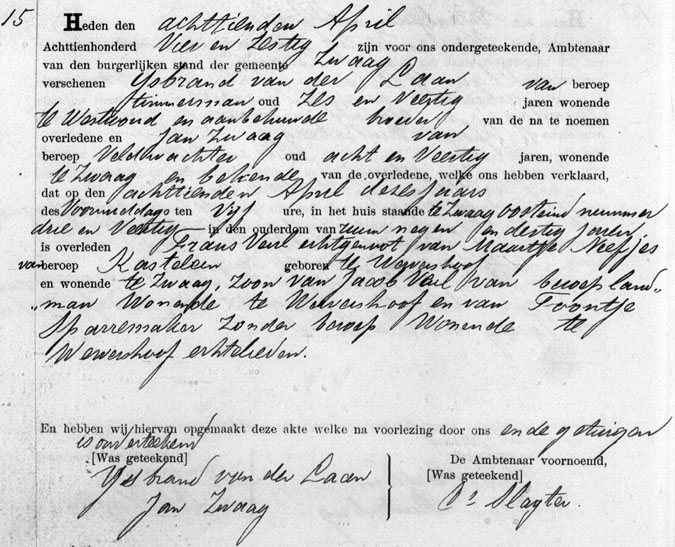 15
Heden den achttienden April
Achttienhonderd Vier en Zestig zijn voor ons ondergeteekende, Ambtenaar
van den burgerlijken stand der gemeente Zwaag
verschenen Ysbrand van der Laan van beroep
timmerman oud Zes en Veertig jaren wonende
te Westwoud en aanbehuwde broeder van de na te noemen
overledene en Jan Zwaag van
beroep Veldwachter oud acht en Veertig jaren, wonende
te Zwaag en bekende van de overledene, welke ons hebben verklaard,
dat op den achttienden April dezes jaars
des Voormiddags ten Vijf ure, in het huis staande te Zwaag oosteind nummer
drie en Veertig in den ouderdom van ruim negen en dertig jaren
is overleden Frans Veul echtgenoot van Maartje Neefjes
van beroep Kastelein geboren te Wervershoof
en wonende te Zwaag, Zoon van Jacob Veul van beroep land„
„man Wonende te Wervershoof en van Trontje
Sparremaker Zonder beroep Wonende te
Wervershoof echtelieden.
En hebben wij hiervan opgemaakt deze akte welke na voorlezing door ons en de getuigen
is onderteekend
[Was geteekend] De Ambtenaar voornoemd,
Ysbrand van der Laan [Was geteekend]
Jan Zwaag Slagter.